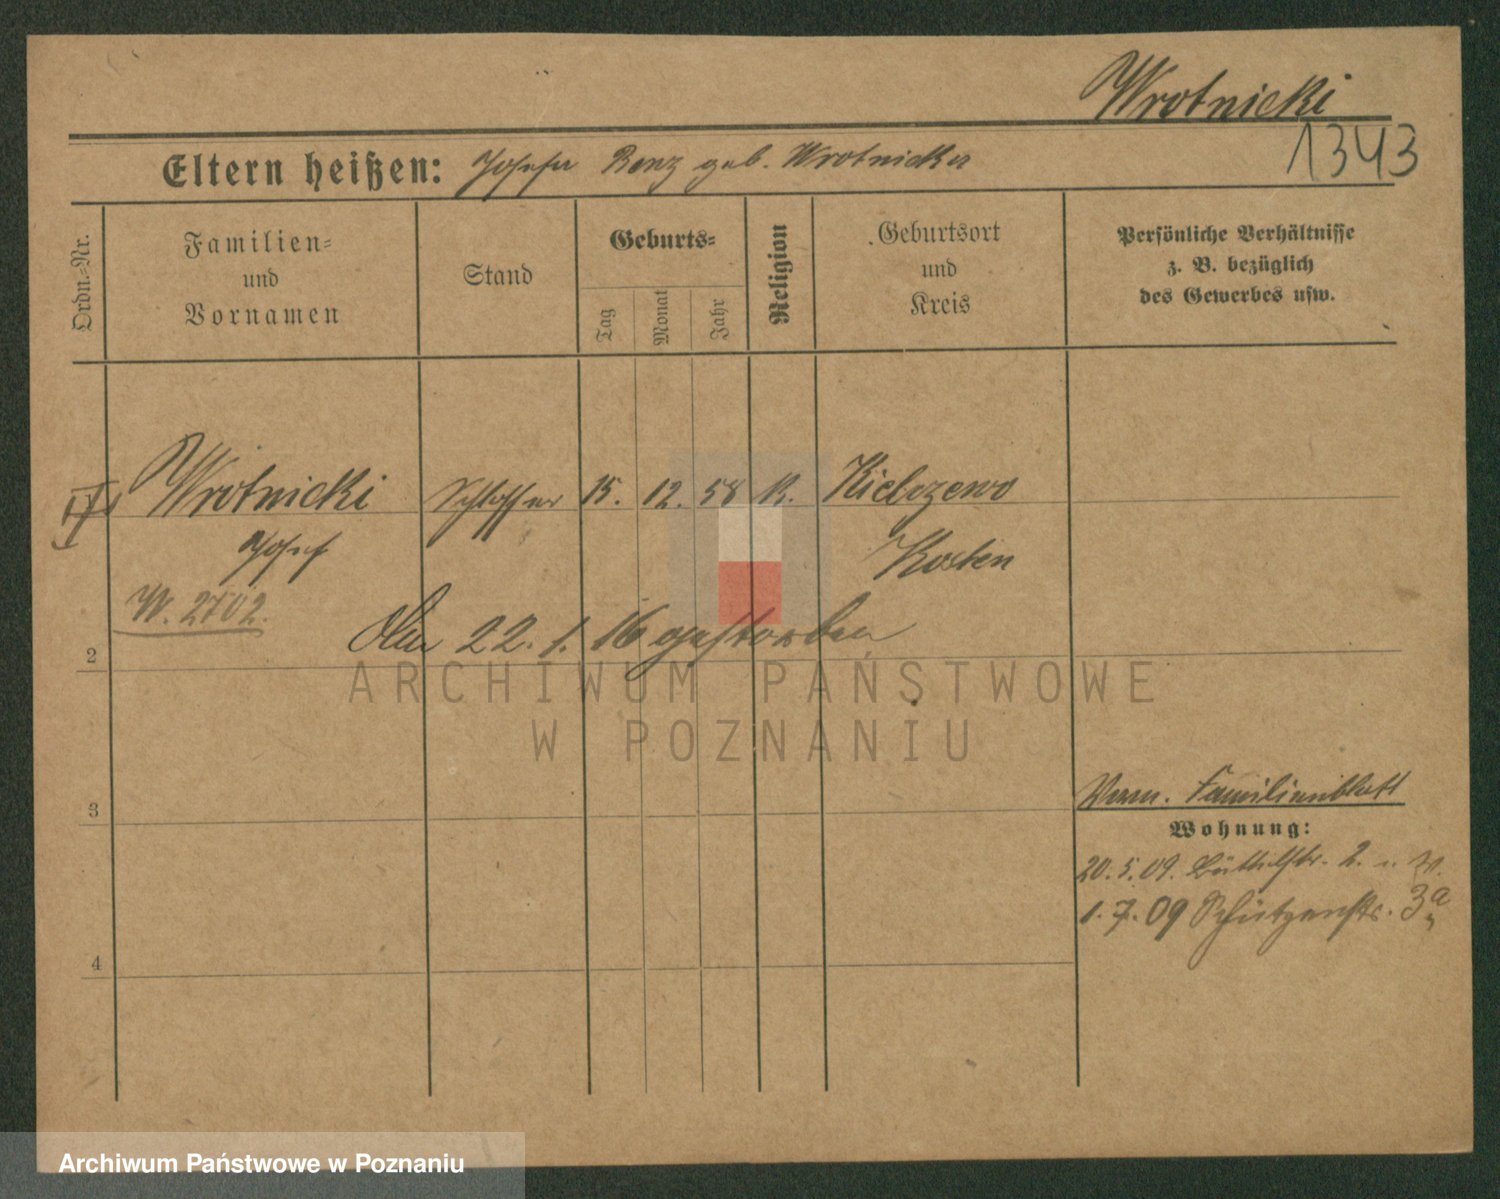 Wrotnicki
1343
Eltern heißen: Josefa Renz geb. Wrotnicka
Ordn.-Nr.
Familien-
und
Vornamen
Stand
Geburts-
Tag
Monat
Jahr
Religion
Geburtsort
und
Kreis
Persönliche Verhältnisse
z. B. bezüglich
des Gewerbes usw.
Wrotnicki Schlosser 15. 12. 58 K. Kielczewo
Josef Kosten
W. 2702.
Den 22. 1. 16 gestorben
2
ARCHIWUM PAŃSTWOWE
W POZNANIU
3
Familienblatt
Wohnung:
20. 5. 09. 2.
1. 7. 09 Schützenstr. 3a
4
Archiwum Państwowe w Poznaniu